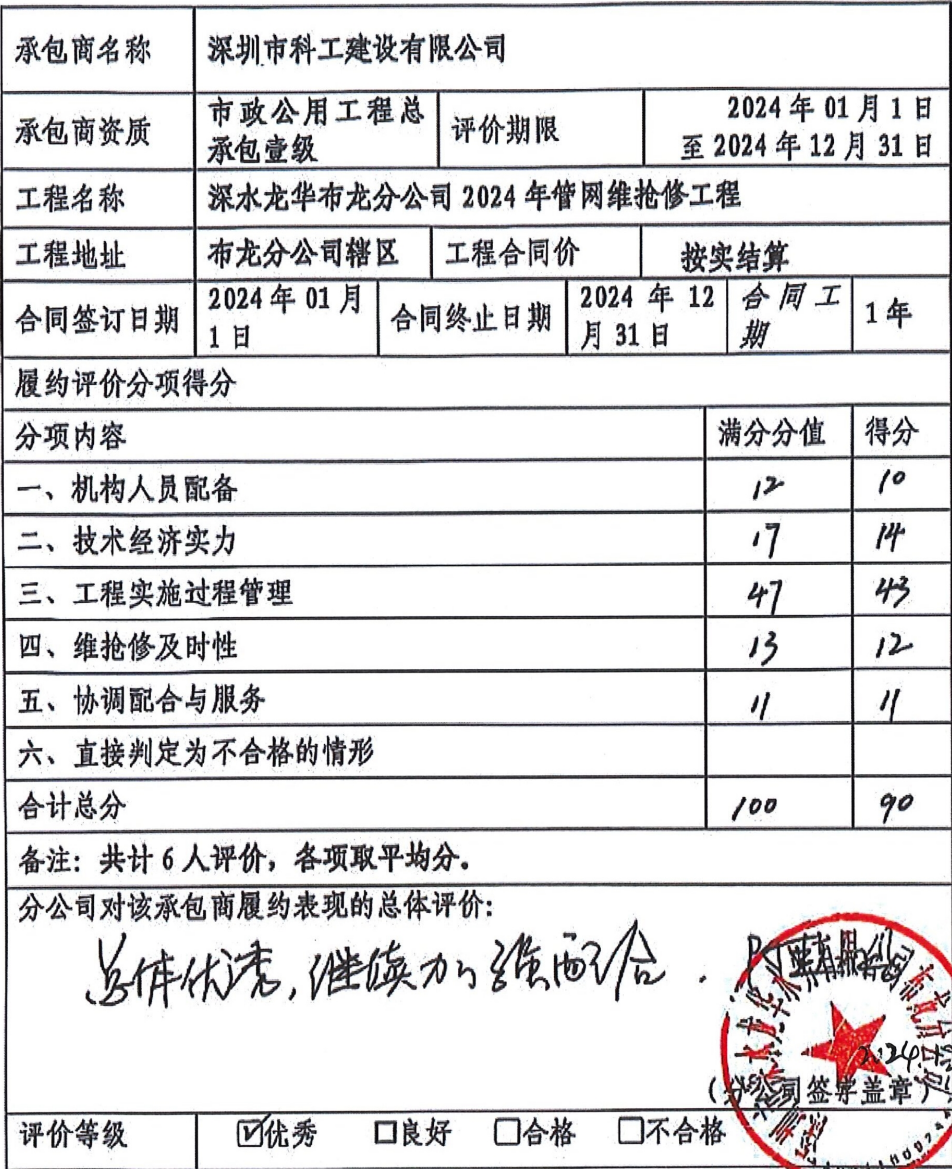 承包商名称 深圳市科工建设有限公司
承包商资质 市政公用工程总承包壹级 评价期限 2024年01月1日至2024年12月31日
工程名称 深水龙华布龙分公司2024年管网维抢修工程
工程地址 布龙分公司辖区 工程合同价 按实结算
合同签订日期 2024年01月1日 合同终止日期 2024年12月31日 合同工期 1年
履约评价分项得分
分项内容 满分分值 得分
一、机构人员配备 12 10
二、技术经济实力 17 14
三、工程实施过程管理 47 43
四、维抢修及时性 13 12
五、协调配合与服务 11 11
六、直接判定为不合格的情形
合计总分 100 90
备注：共计6人评价，各项取平均分。
分公司对该承包商履约表现的总体评价：
总体优秀，继续加强配合.
2024
（分公司签字盖章）
评价等级 ☑优秀 □良好 □合格 □不合格